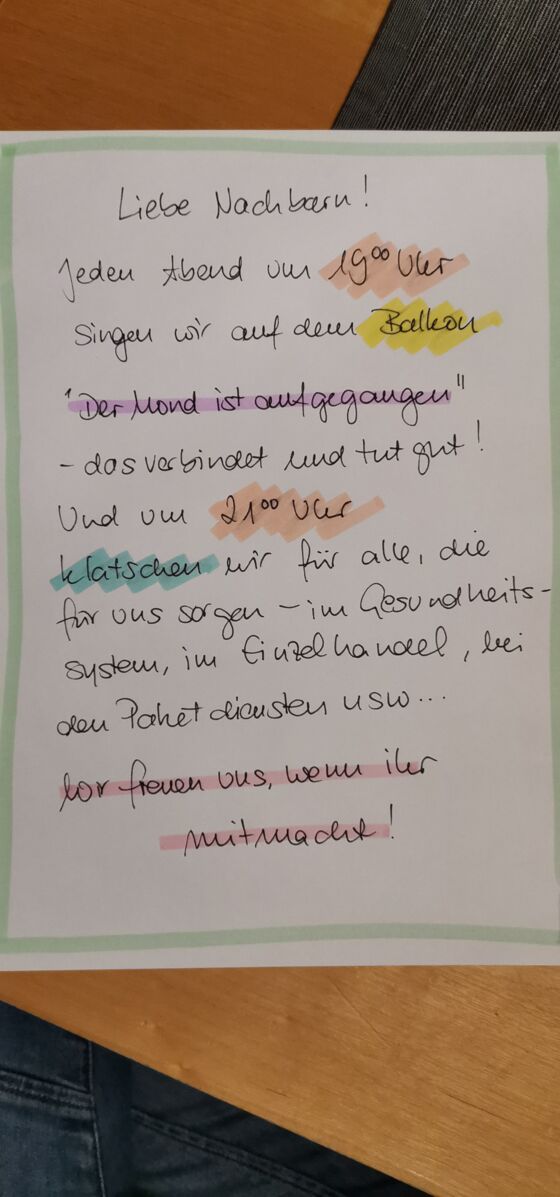 Liebe Nachbarn!
Jeden Abend um 19⁰⁰ Uhr
singen wir auf dem Balkon
"Der Mond ist aufgegangen"
- das verbindet und tut gut!
Und um 21⁰⁰ Uhr
klatschen wir für alle, die
für uns sorgen - im Gesundheits-
system, im Einzelhandel, bei
den Paketdiensten usw...
Wir freuen uns, wenn ihr
mitmacht!